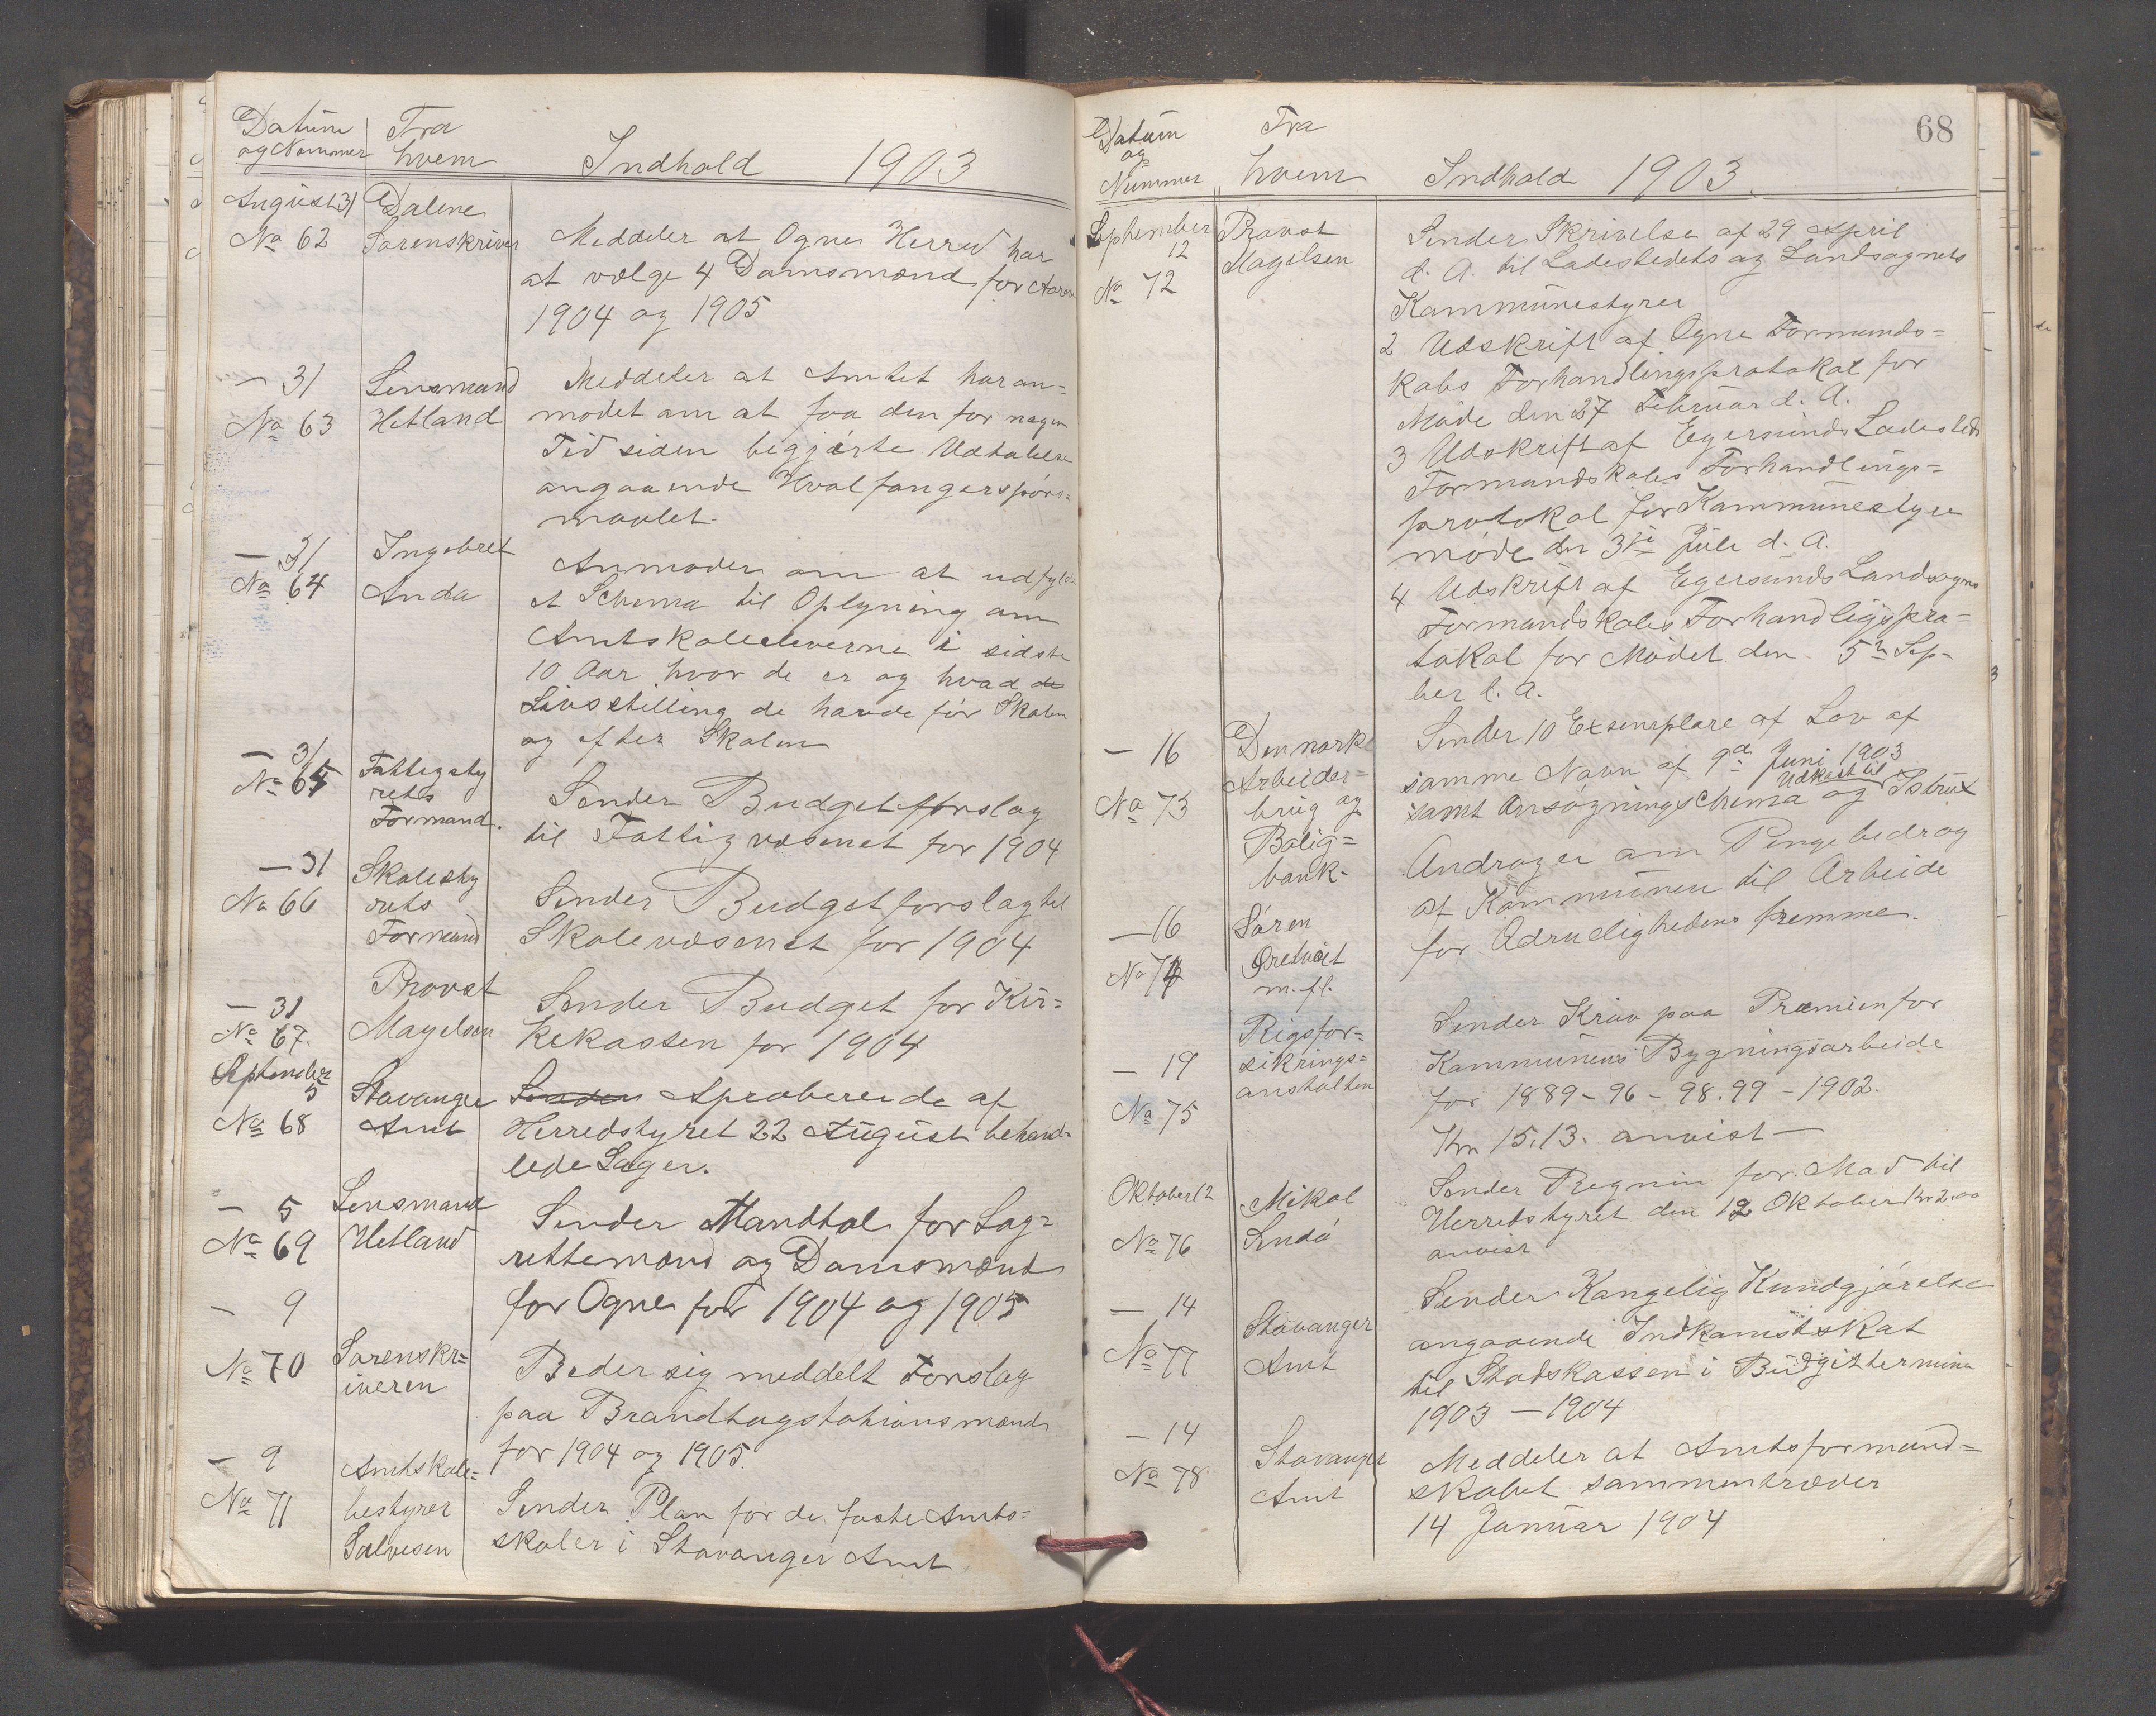 Datum Fra
og Nommer hvem Indhold 1903
August 31 Dalene
No 62 Sorenskriver Meddeler at Ogne Herred har
at vælge 4 Domsmænd for Aarene
1904 og 1905
— 31 Lensmand Meddeler at Amtet har an=
No 63 Hetland modet om at faa den for nogen
Tid siden begjærte Udtalelse
angaaende Hvalfangerspörs=
maalet.
— 31 Ingebret Anmoder om at udfylde
No 64 Anda et Schema til Oplyning om
Amtskoleeleverne i sidste
10 Aar hvor de er og hvad de
Livsstilling de havde för Skolen
og efter Skolen
— 31 Fattigsty
No 65 rets Sender Budgetforslag
Formand. til Fattigvæsenet for 1904
— 31 Skolesty
No 66 rets Sender Budgetforslag til
Formand Skolevæsenet for 1904
Provst
— 31 Sender Budget for Kir=
No 67. Magelsen kekassen for 1904
September
5 Stavanger Sender Aproberende af
No 68 Amt Herredstyret 22 August behand=
lede Sager.
— 5 Lensmand Sender Mandtal for Lag=
No 69 Hetland rettemænd og Domsmænd
— 9 for Ogne for 1904 og 1905
No 70 Sorenskr= Beder sig meddelt Forslag
iveren paa Brandtagstationsmænd
— 9 Amtskole= for 1904 og 1905.
No 71 bestyrer Sender Plan for de faste Amts=
Salvesen skoler i Stavanger Amt
68
Datum Fra
og
Nummer hvem Indhold 1903.
September Provst Sender Skrivelse af 29 April
12 Magelsen d. A. til Ladestedets og Landsognets
No 72 Kommunestyrer
2 Udskrift af Ogne Formands=
kabs Forhandlingsprotokol for
Möde den 27 Februar d. A.
3 Udskrift af Egersunds Ladesteds
Formandskabs Forhandlings=
protokol for Kommunestyre
möde den 3je Juli d. A.
4 Udskrift af Egersunds Landsogns
Formandskabs Forhandligspro=
tokol for Mödet den 5n Sep-
ber d. A.
— 16 Den norske Sender 10 Exsemplare af Lov af
Arbeider= samme Navn af 9de Juni 1903
No 73 brug og samt Ansögningschema og Udkast til Istrux
Bolig=
bank- Andrager om Pengebedrag
— 16 Sören af Kommunen til Arbeide
No 74 for Ædrudlighedens fremme.
m. fl.
Rigsfor= Sender Krav paa Præmien for
— 19 sikrings= Kommunens Bygningsarbeide
anstalten for 1889 – 96 – 98. 99 – 1902.
No 75 Kr 15,13. anvist —
Oktober 12 Mikal Sender Regnin for Mad til
No 76 Herredstyret den 12 Oktober Kr 2.00
anvist
— 14 Stavanger Sender Kongelig Kundgjörelse
No 77 Amt angaaende Indkomstskat
til Statskassen i Budgittermina
1903 — 1904
— 14 Stavanger Meddeler at Amtsformand=
No 78 Amt skabet sammentræder
14 Januar 1904